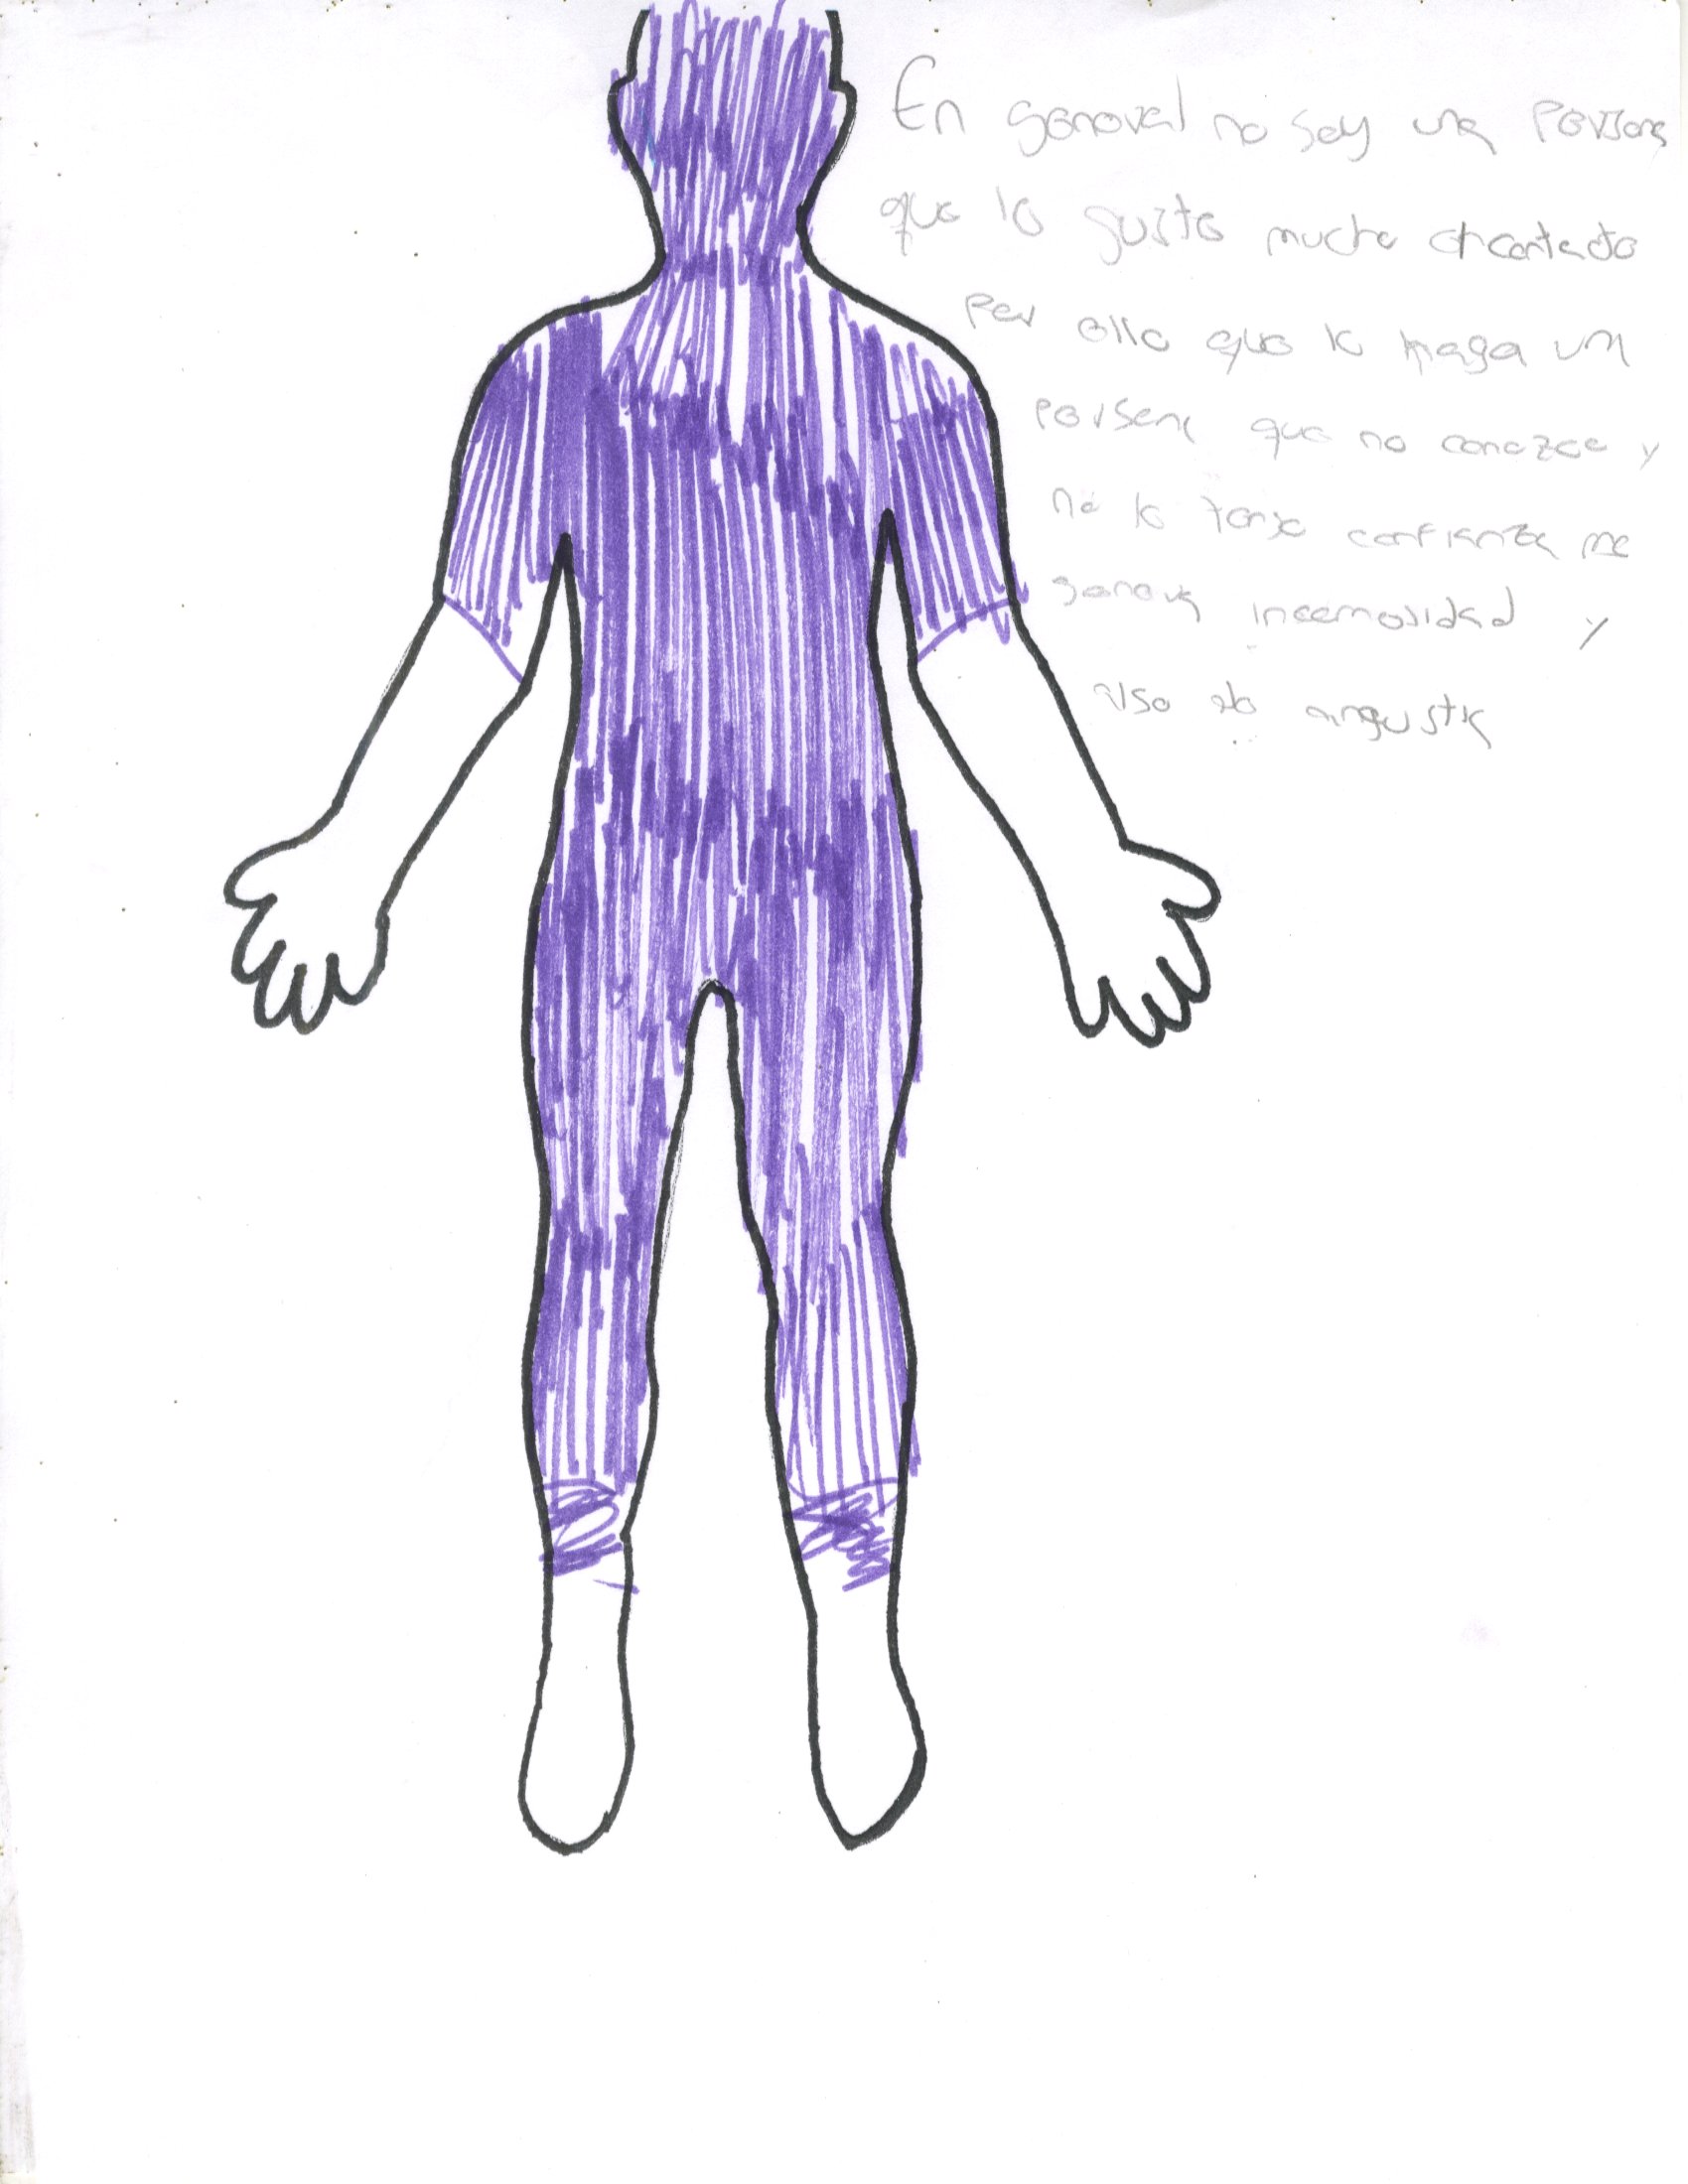 En general no soy una persona
que le gusta mucho el contacto
por ello que lo haga un
persona que no conozco y
no le tengo confianza me
genera incomodidad y
algo de angustia